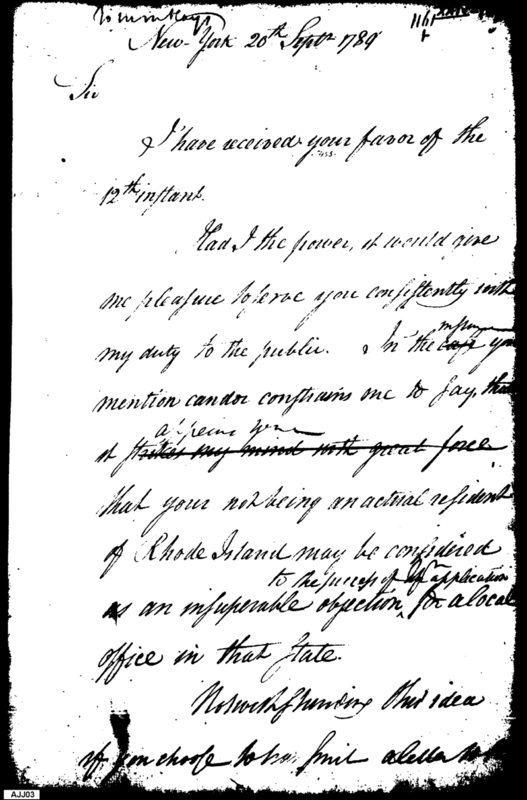 New-York 20th Septr 1789
Sir
I have received your favor of the
12th instant.
Had I the power, it would give
me pleasure to serve you consistently with
my duty to the public. In the case you
mention candor constrains me to say, that
it strikes my mind with great force
that your not being an actual resident
of Rhode Island may be considered
to the success of an application
as an insuperable objection, for a local
office in that State.
Notwithstanding this idea
if you choose to transmit a letter to
AJJ03